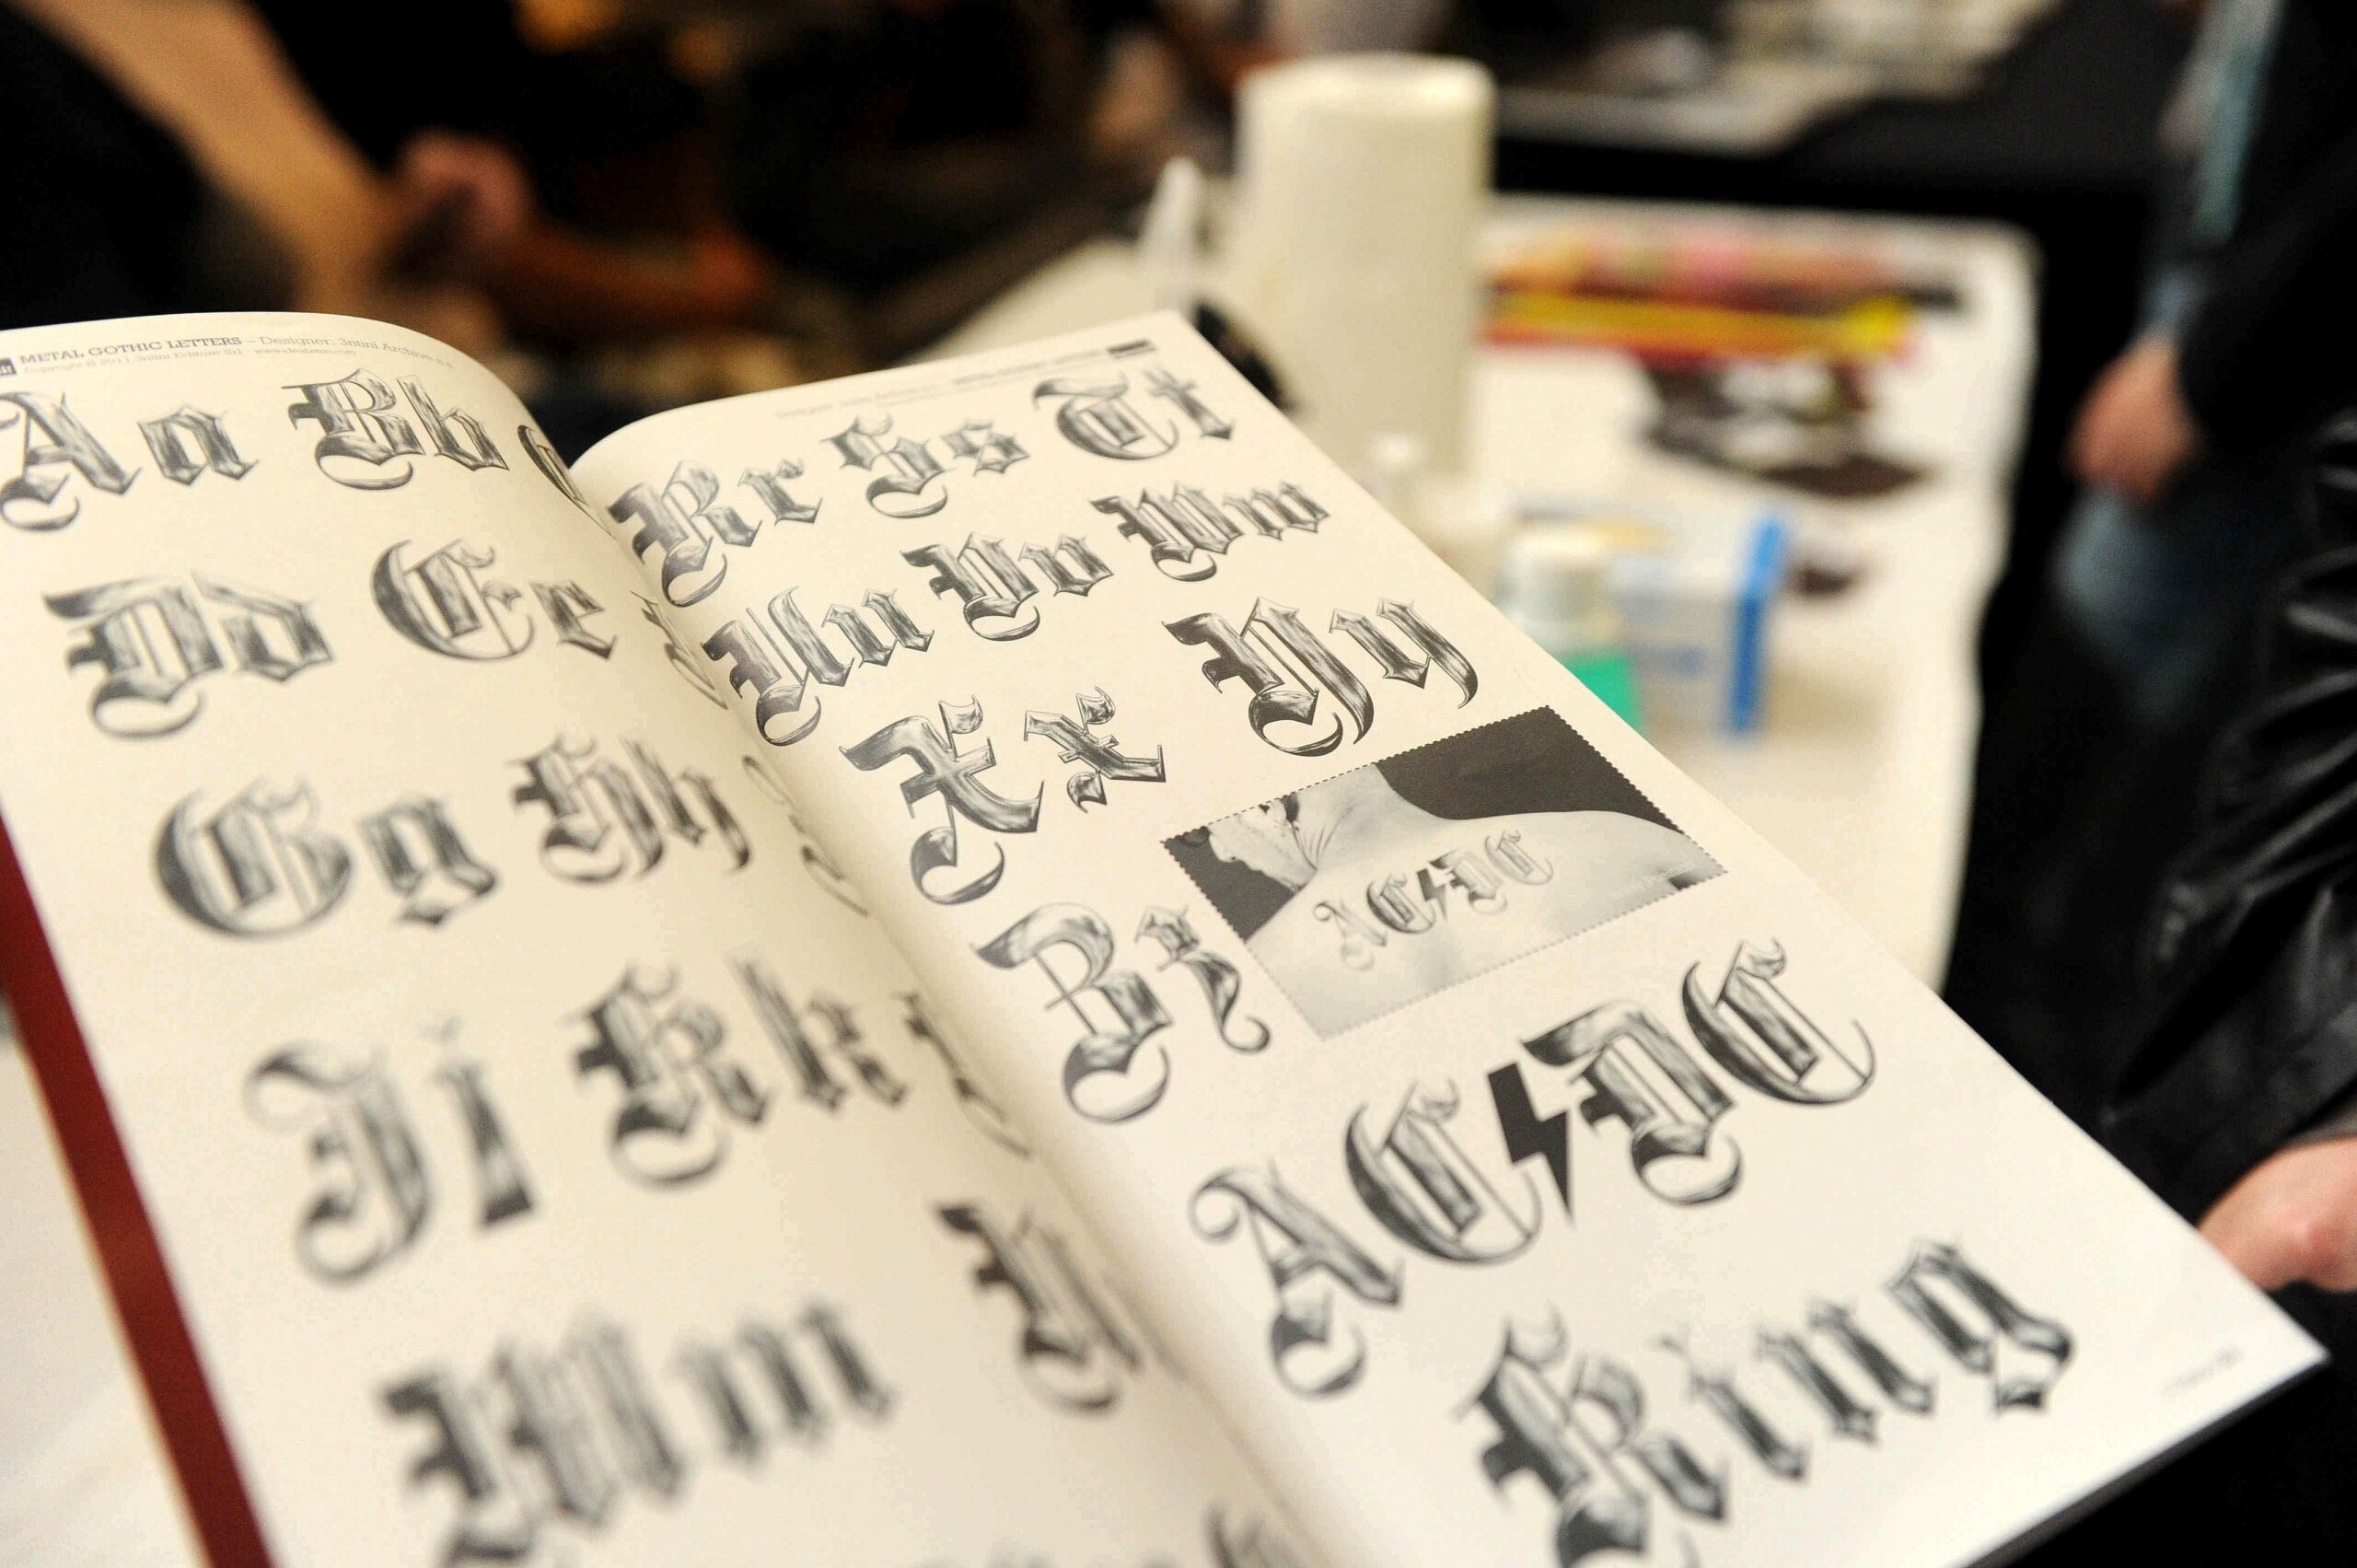 METAL GOTHIC LETTERS – Designer: 3ntini Archive
Copyright © 2011 3ntini Editore Srl - www.
Aa Bb
Dd Ee
Gg Hh
Ii Kk
Mm N
Rr Ss Tt
Uu Vv Ww
Xx Yy
Zz
AC⚡DC
AC⚡DC
King